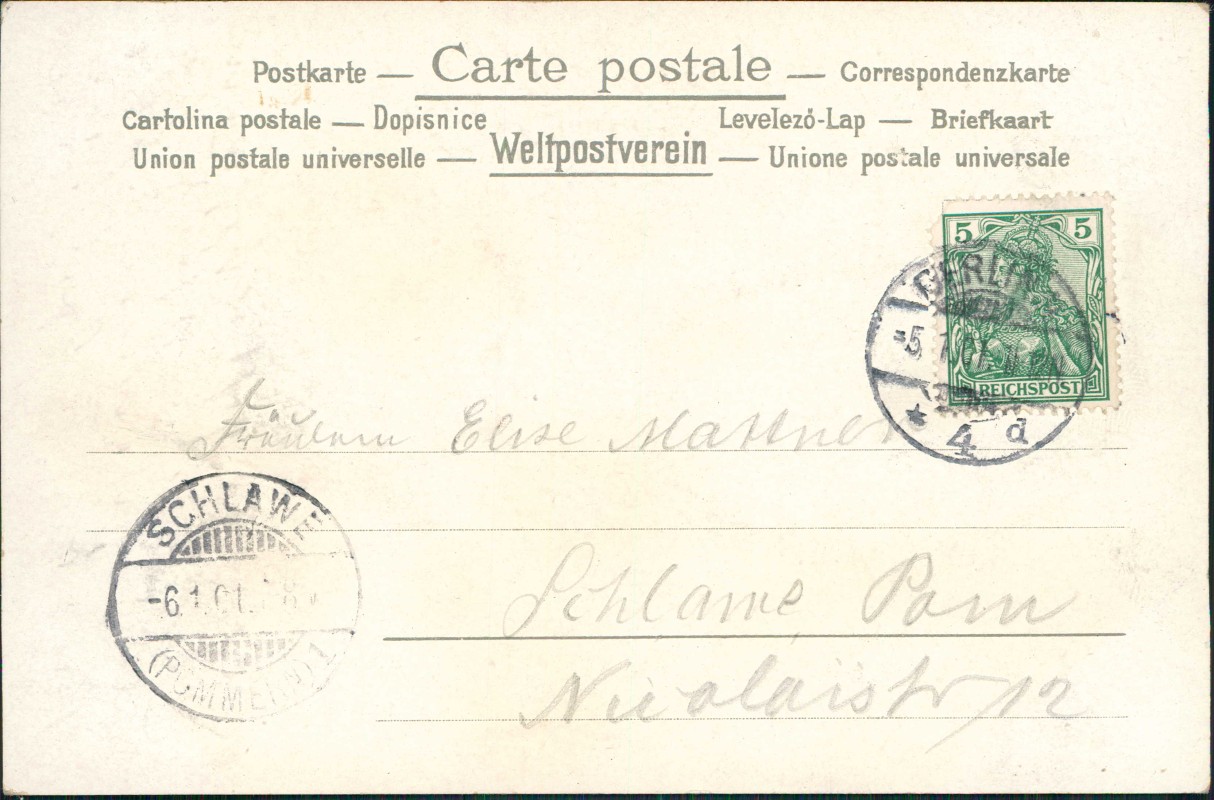 Postkarte — Carte postale — Correspondenzkarte
Cartolina postale — Dopisnice Levelező-Lap — Briefkaart
Union postale universelle — Weltpostverein — Unione postale universale
5 5
REICHSPOST
BERLIN
-5.1.01
* 4 d
Fräulein Elise Mattner
SCHLAWE
-6.1.01.
(POMMERN) 1
Schlawe, Pom
Nicolaistr 12